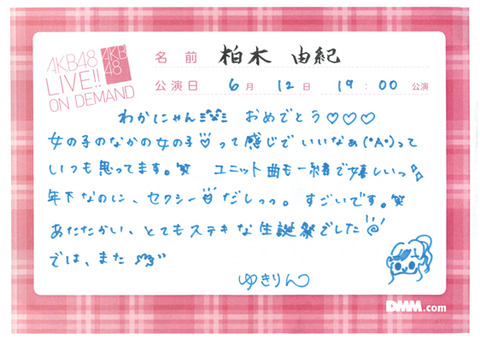 AKB48
LIVE!!
ON DEMAND
AKB
48
名前 柏木 由紀
公演日 6月 12日 19:00 公演
わかにゃん おめでとう♡♡♡
女の子のなかの女の子♡って感じでいいなぁ(°A°)って
いつも思ってます。笑 ユニット曲も一緒で嬉しいっ
年下なのに、セクシーだしっっ。すごいです。笑
あたたかい、とてもステキな生誕祭でした
では、また
ゆきりん
DMM.com